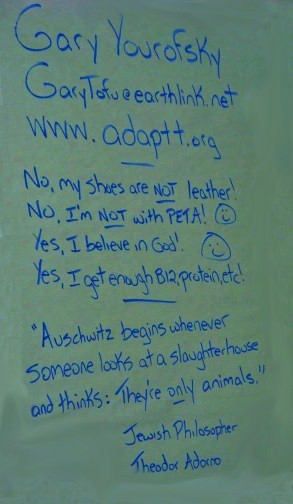 Gary Yourofsky
GaryTofu@earthlink.net
www.adaptt.org
No, my shoes are NOT leather!
No, I'm NOT with PETA! ☺
Yes, I believe in God!
Yes, I get enough B12, protein, etc!
"Auschwitz begins whenever
someone looks at a slaughterhouse
and thinks: They're only animals."
Jewish Philosopher
Theodor Adorno